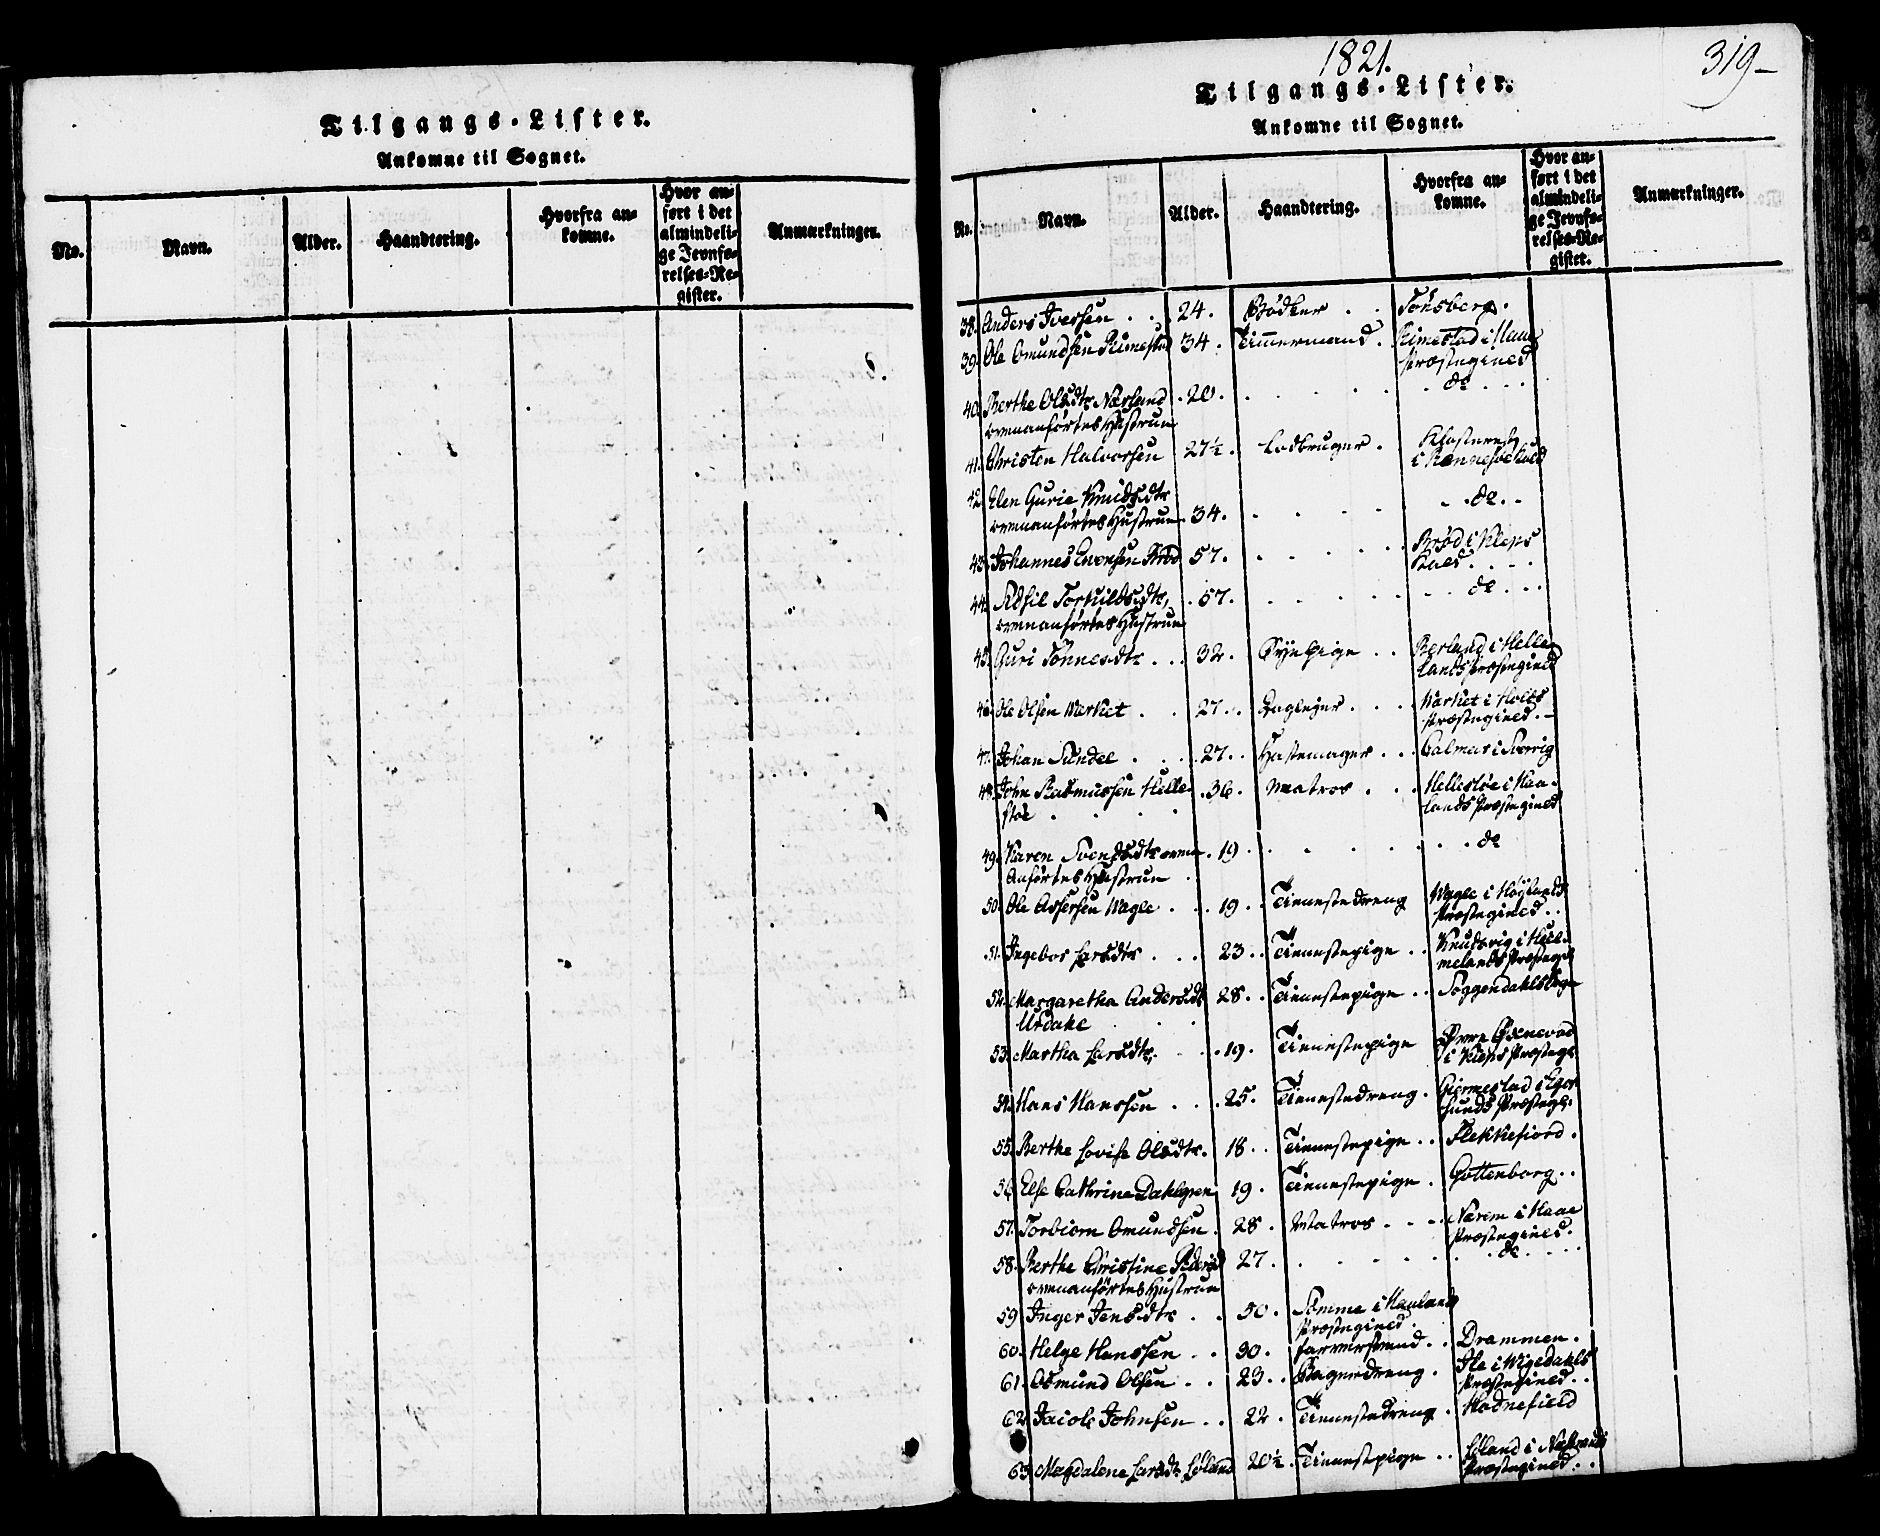 Tilgangs-Lister.
Ankomne til Sognet.
No.
Navn.
Alder.
Haandtering.
Hvorfra an-
komne.
Hvor an-
ført i det
almindeli-
ge Jevnfø-
relses-Re-
gister.
Anmærkninger.
1821.
319-
Tilgangs-Lister.
Ankomne til Sognet.
No.
Navn.
Alder.
Haandtering.
Hvorfra an-
komne.
Hvor an-
ført i det
almindeli-
ge Jevnfø-
relses-Re-
gister.
Anmærkninger.
38. Anders Iversen . . 24. Bødker . . Tønsberg.
39. Ole Omundsen Rimestad 34. Timmermand. Rimestad i Haae
Præstegield
40. Berthe Olsdtr Nærland . 20. . . . . do . . .
ovenanførtes Hustrue
41. Christen Halvorsen 27½. Lodbruger. Klosteret
i Rennesøe
42. Elen Gurie Knudsdtr . . do . .
ovenanførtes Hustrue 34. . . . .
43. Johannes Evensen Brød 57. . . . . Brød i Kleps
44. Torkildsdtr, . 57. . . . . . do . . .
ovenanførtes Hustrue
45. Guri Tønnesdtr . . . 32. Sypige . . i Helle-
lands Præstegield
46. Ole Olsen . . 27. . Dagleier . . .
Præstegield . -
47. Johan . . . 27. . Hattemager . . . Calmar i Sverrig
48. John Rasmussen Helle- . 36. Matros . . . Hellestøe i Haa-
støe . . . . lands Præstegield
49. Karen Svendsdtr oven- . 19. . . . . . . do
anførtes Hustrue .
50. Ole Assersen Wagle . . . 19. . Tienestedreng Wagle i Høilands
Præstegield . .
51. Ingebor Larsdtr . . . 23. . Tienestepige . . Knudsvig i Hiel-
melands Præstegd
52. Margaretha Andersdtr 28. . Tienestepige . . Soggendahls Sogn
Urdahl . .
53. Martha Larsdtr. . . . 19. Tienestepige Øvre Øxnevad
i Kleps Præsteg:
54. Hans Hanssen . . . 25. Tienestedreng . i Eger-
sunds Præstegl:
55. Berthe Lovise Olsdtr. 18. . Tienestepige . . Flekkefiord .
56. Else Cathrine Dahlgren 19. Tienestepige . Gottenborg . .
57. Torbiørn Omundsen . 28. Matros . . . Nærem i Haae
Præstegield.
58. Berthe Christine Pedersd 27. . . . . . do . . .
ovenanførtes Hustrue
59. Inger Jensdtr . . 50. Sømme i Haaland
Præstegield .
60. Helge Hanssen . . 30. Farversvend . . Drammen .
61. Osmund Olsen . . 23. . Bagerdreng . i Wigedahls
Præstegield . .
62. Jacob Johnsen . . 22. Tienestedreng . Hodnefield
63. Magdalene Larsdtr Løland 20½. Tienestepige . . Løland i
Præstegield . .